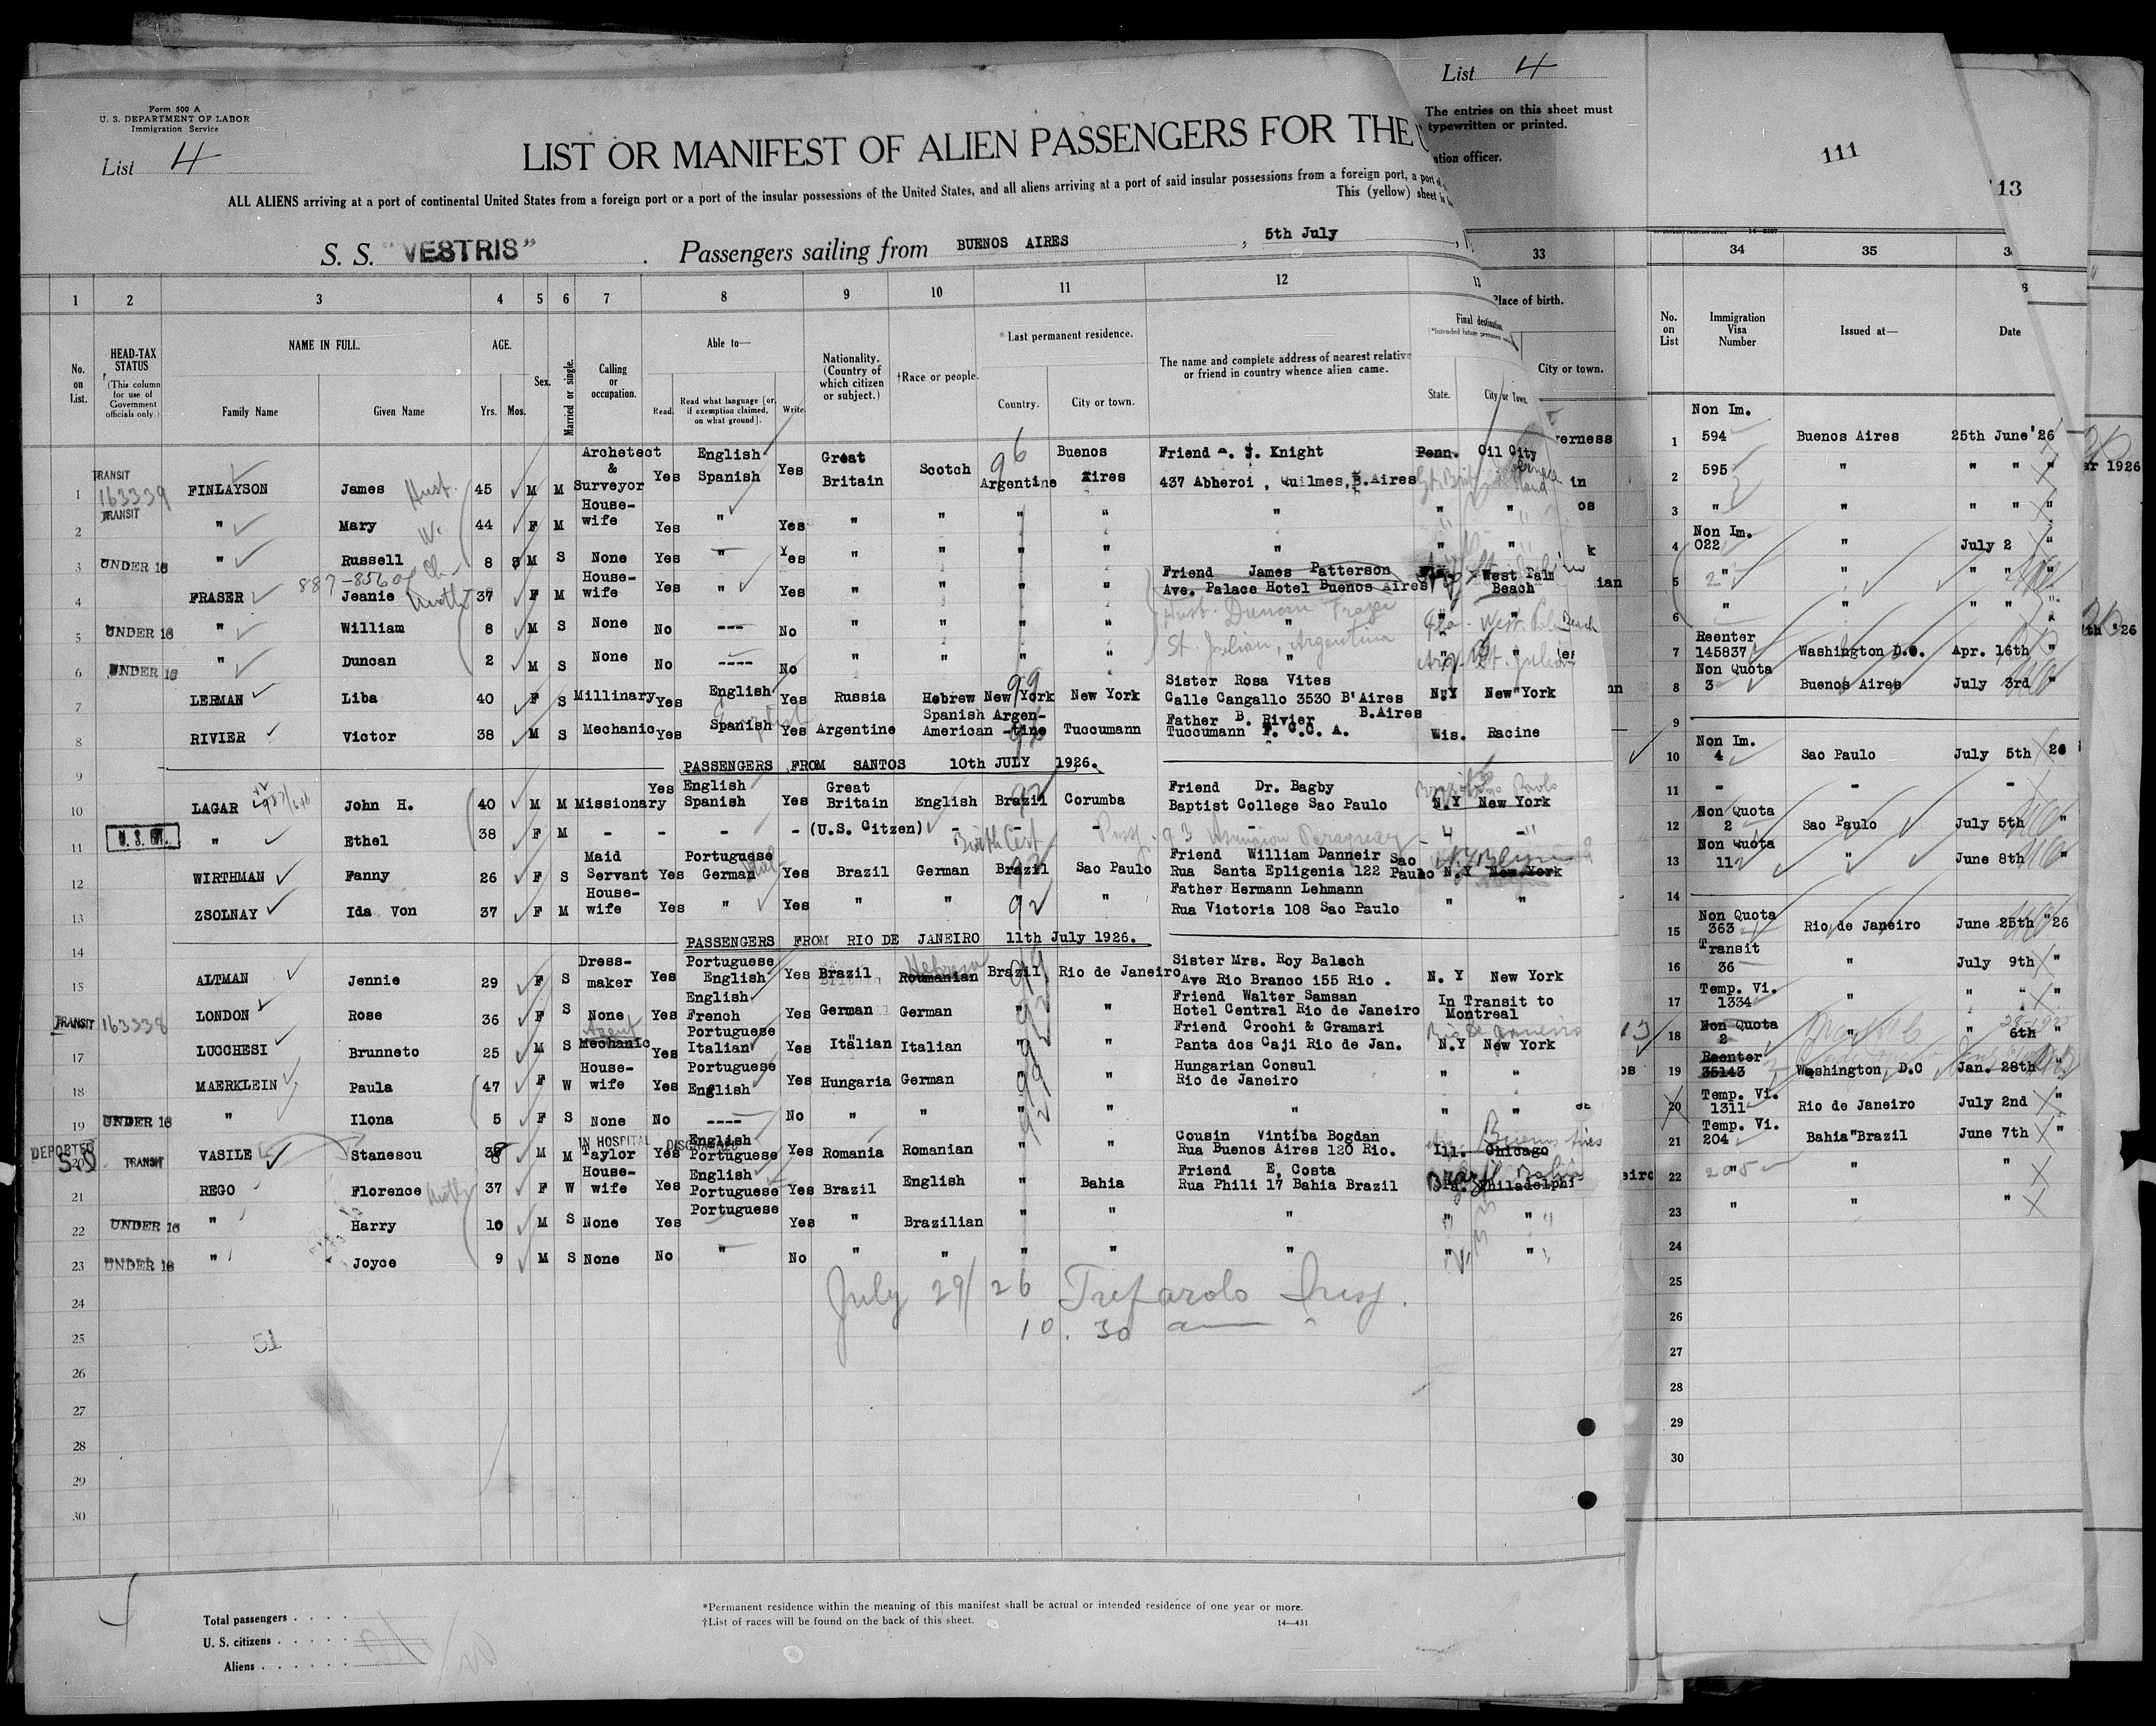 Form 500 A
U. S. DEPARTMENT OF LABOR
Immigration Service
List 4
LIST OR MANIFEST OF ALIEN PASSENGERS FOR THE
ALL ALIENS arriving at a port of continental United States from a foreign port or a port of the insular possessions of the United States, and all aliens arriving at a port of said insular possessions from a foreign port, a port
This (yellow) sheet is
S. S. "VESTRIS" . Passengers sailing from BUENOS AIRES , 5th July ,
List 4
The entries on this sheet must
typewritten or printed.
ation officer.
111
13
1 2 3 4 5 6 7 8 9 10 11 12 33 34 35
No. on List.
HEAD-TAX STATUS
(This column for use of Government officials only.)
NAME IN FULL.
Family Name Given Name
AGE.
Yrs. Mos.
Sex.
Married or single.
Calling or occupation.
Able to—
Read. Read what language [or, if exemption claimed, on what ground]. Write.
Nationality. (Country of which citizen or subject.)
†Race or people.
*Last permanent residence.
Country. City or town.
The name and complete address of nearest relative or friend in country whence alien came.
Final destination
State. City or Town.
Place of birth.
City or town.
No. on List
Immigration Visa Number
Issued at—
Date
1 TRANSIT 163339 FINLAYSON James Hust. 45 M M Archetect & Surveyor Yes English Spanish Yes Great Britain Scotch 96 Argentine Buenos Aires Friend A. J. Knight 437 Abheroi , Quilmes, B.Aires Penn. Oil City
2 TRANSIT " Mary W. 44 F M House-wife Yes " Yes " " " " " " "
3 UNDER 16 " Russell 8 3 M S None Yes " Yes " " " " " " "
4 FRASER Jeanie 37 F M House-wife Yes " Yes " " " " Friend James Patterson Ave. Palace Hotel Buenos Aires West Palm Beach
Hust. Duncan Frazer
St. Julian, Argentina
5 UNDER 16 " William 8 M S None No --- No " " " " " " "
6 UNDER 16 " Duncan 2 M S None No ---- No " " " " " " "
7 LERMAN Liba 40 F S Millinary Yes English Yes Russia Hebrew New York 99 New York Sister Rosa Vites Calle Cangallo 3530 B'Aires N.Y New York
8 RIVIER Victor 38 M S Mechanic Yes Spanish Yes Argentine Spanish American Argen-tine Tuccumann Father B. Rivier B.Aires Tuccumann F. C.C. A. Wis. Racine
9 PASSENGERS FROM SANTOS 10th JULY 1926.
10 LAGAR John H. 40 M M Missionary Yes English Spanish Yes Great Britain English Brazil Corumba Friend Dr. Bagby Baptist College Sao Paulo N.Y New York
11 " Ethel 38 F M - - - - (U.S. Citzen) - - - -
Birth Cert
12 WIRTHMAN Fanny 26 F S Maid Servant Yes Portuguese German Yes Brazil German Brazil Sao Paulo Friend William Danneir Rua Santa Epligenia 122 Sao Paulo N.Y New York
13 ZSOLNAY Ida Von 37 F M House-wife Yes " Yes " " 92 " Father Hermann Lehmann Rua Victoria 108 Sao Paulo " "
14 PASSENGERS FROM RIO DE JANEIRO 11th July 1926.
15 ALTMAN Jennie 29 F S Dress-maker Yes Portuguese English Yes Brazil Roumanian Hebrew Brazil Rio de Janeiro Sister Mrs. Roy Balach Ave Rio Branco 155 Rio . N. Y New York
TRANSIT 163338 LONDON Rose 36 F S None Yes English French Yes German German " " Friend Walter Samsan Hotel Central Rio de Janeiro In Transit to Montreal
17 LUCCHESI Brunneto 25 M S Mechanic Agent Yes Portuguese Italian Yes Italian Italian " " Friend Crochi & Gramari Panta dos Caji Rio de Jan. N.Y New York Rio de Janeiro
18 MAERKLEIN Paula 47 F W House-wife Yes Portuguese English Yes Hungaria German " " Hungarian Consul Rio de Janeiro " "
19 UNDER 16 " Ilona 5 F S None No ---- No " " " " " " "
DEPORTED 20 TRANSIT VASILE Stanescu M M Taylor IN HOSPITAL DISCHARGED Yes English Portuguese Yes Romania Romanian " " Cousin Vintiba Bogdan Rua Buenos Aires 120 Rio. Ill. Chicago Buenos Aires
21 REGO Florence 37 F W House-wife Yes English Portuguese Yes Brazil English " Bahia Friend E, Costa Rua Phili 17 Bahia Brazil Pa. Philadelphi Brazil Bahia
22 UNDER 16 " Harry 10 M S None Yes Portuguese Yes " Brazilian " " " " "
23 UNDER 16 " Joyce 9 M S None No " No " " " " " " "
July 29/26
10.30 am
24
25
51
26
27
28
29
30
Total passengers . . . .
U. S. citizens . . . . .
Aliens . . . . . .
*Permanent residence within the meaning of this manifest shall be actual or intended residence of one year or more.
†List of races will be found on the back of this sheet.
14—431
1 Non Im. 594 Buenos Aires 25th June '26
2 595 " " " "
3 " " " " "
4 Non Im. 022 " July 2 "
5 " " " "
6 " " " " "
7 Reenter 145837 Washington D.C. Apr. 16th "
8 Non Quota 3 Buenos Aires July 3rd "
9
10 Non Im. 4 Sao Paulo July 5th 26
11 - - -
12 Non Quota 2 Sao Paulo July 5th "
13 Non Quota 11 " June 8th "
14
15 Non Quota 363 Rio de Janeiro June 25th "26
16 Transit 36 " July 9th "
17 Temp. Vi. 1334 " " " "
18 Non Quota 2 " " 6th "
19 Reenter 35143 Washington, D.C Jan. 28th "
20 Temp. Vi. 1311 Rio de Janeiro July 2nd "
21 Temp. Vi. 204 Bahia"Brazil June 7th "
22 " 205 " "
23 " " "
24
25
26
27
28
29
30